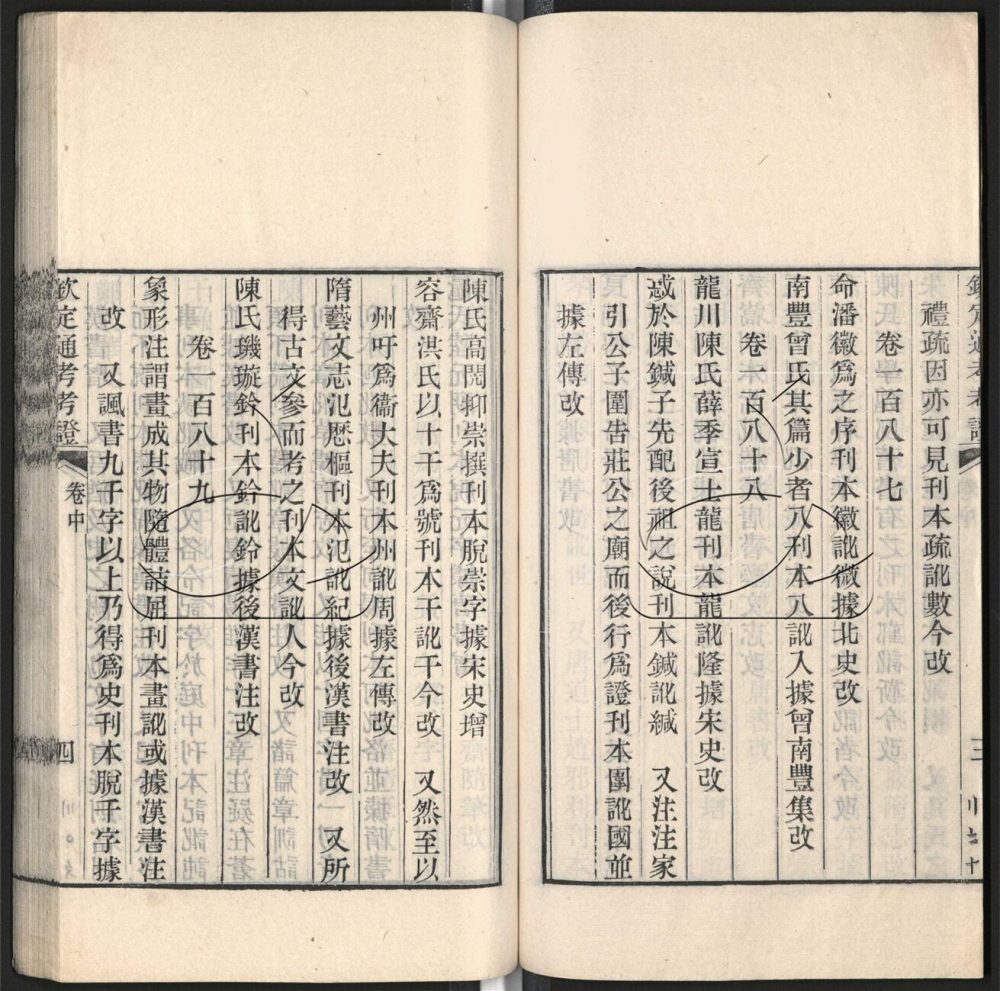 欽定通考考證
三
禮疏因亦可見刊本疏訛數今改
卷一百八十七
命潘徽爲之序刊本徽訛微據北史改
南豐曾氏其篇少者八刊本八訛入據曾南豐集改
卷一百八十八
龍川陳氏薛季宣士龍刊本龍訛隆據宋史改
惑於陳鍼子先配後祖之說刊本鍼訛緘 又注注家
引公子圍告莊公之廟而後行爲證刊本圍訛國並
據左傳改
陳氏高閌抑崇撰刊本脫崇字據宋史增
容齋洪氏以十干爲號刊本干訛千今改 又然至以
州吁爲衞大夫刊本州訛周據左傳改
隋藝文志氾厯樞刊本氾訛紀據後漢書注改 又所
得古文參而考之刊本文訛人今改
陳氏璣璇鈐刊本鈐訛鈴據後漢書注改
卷一百八十九
象形注謂畫成其物隨體詰屈刊本畫訛或據漢書注
改 又諷書九千字以上乃得爲史刊本脫千字據
欽定通考考證
卷中
四